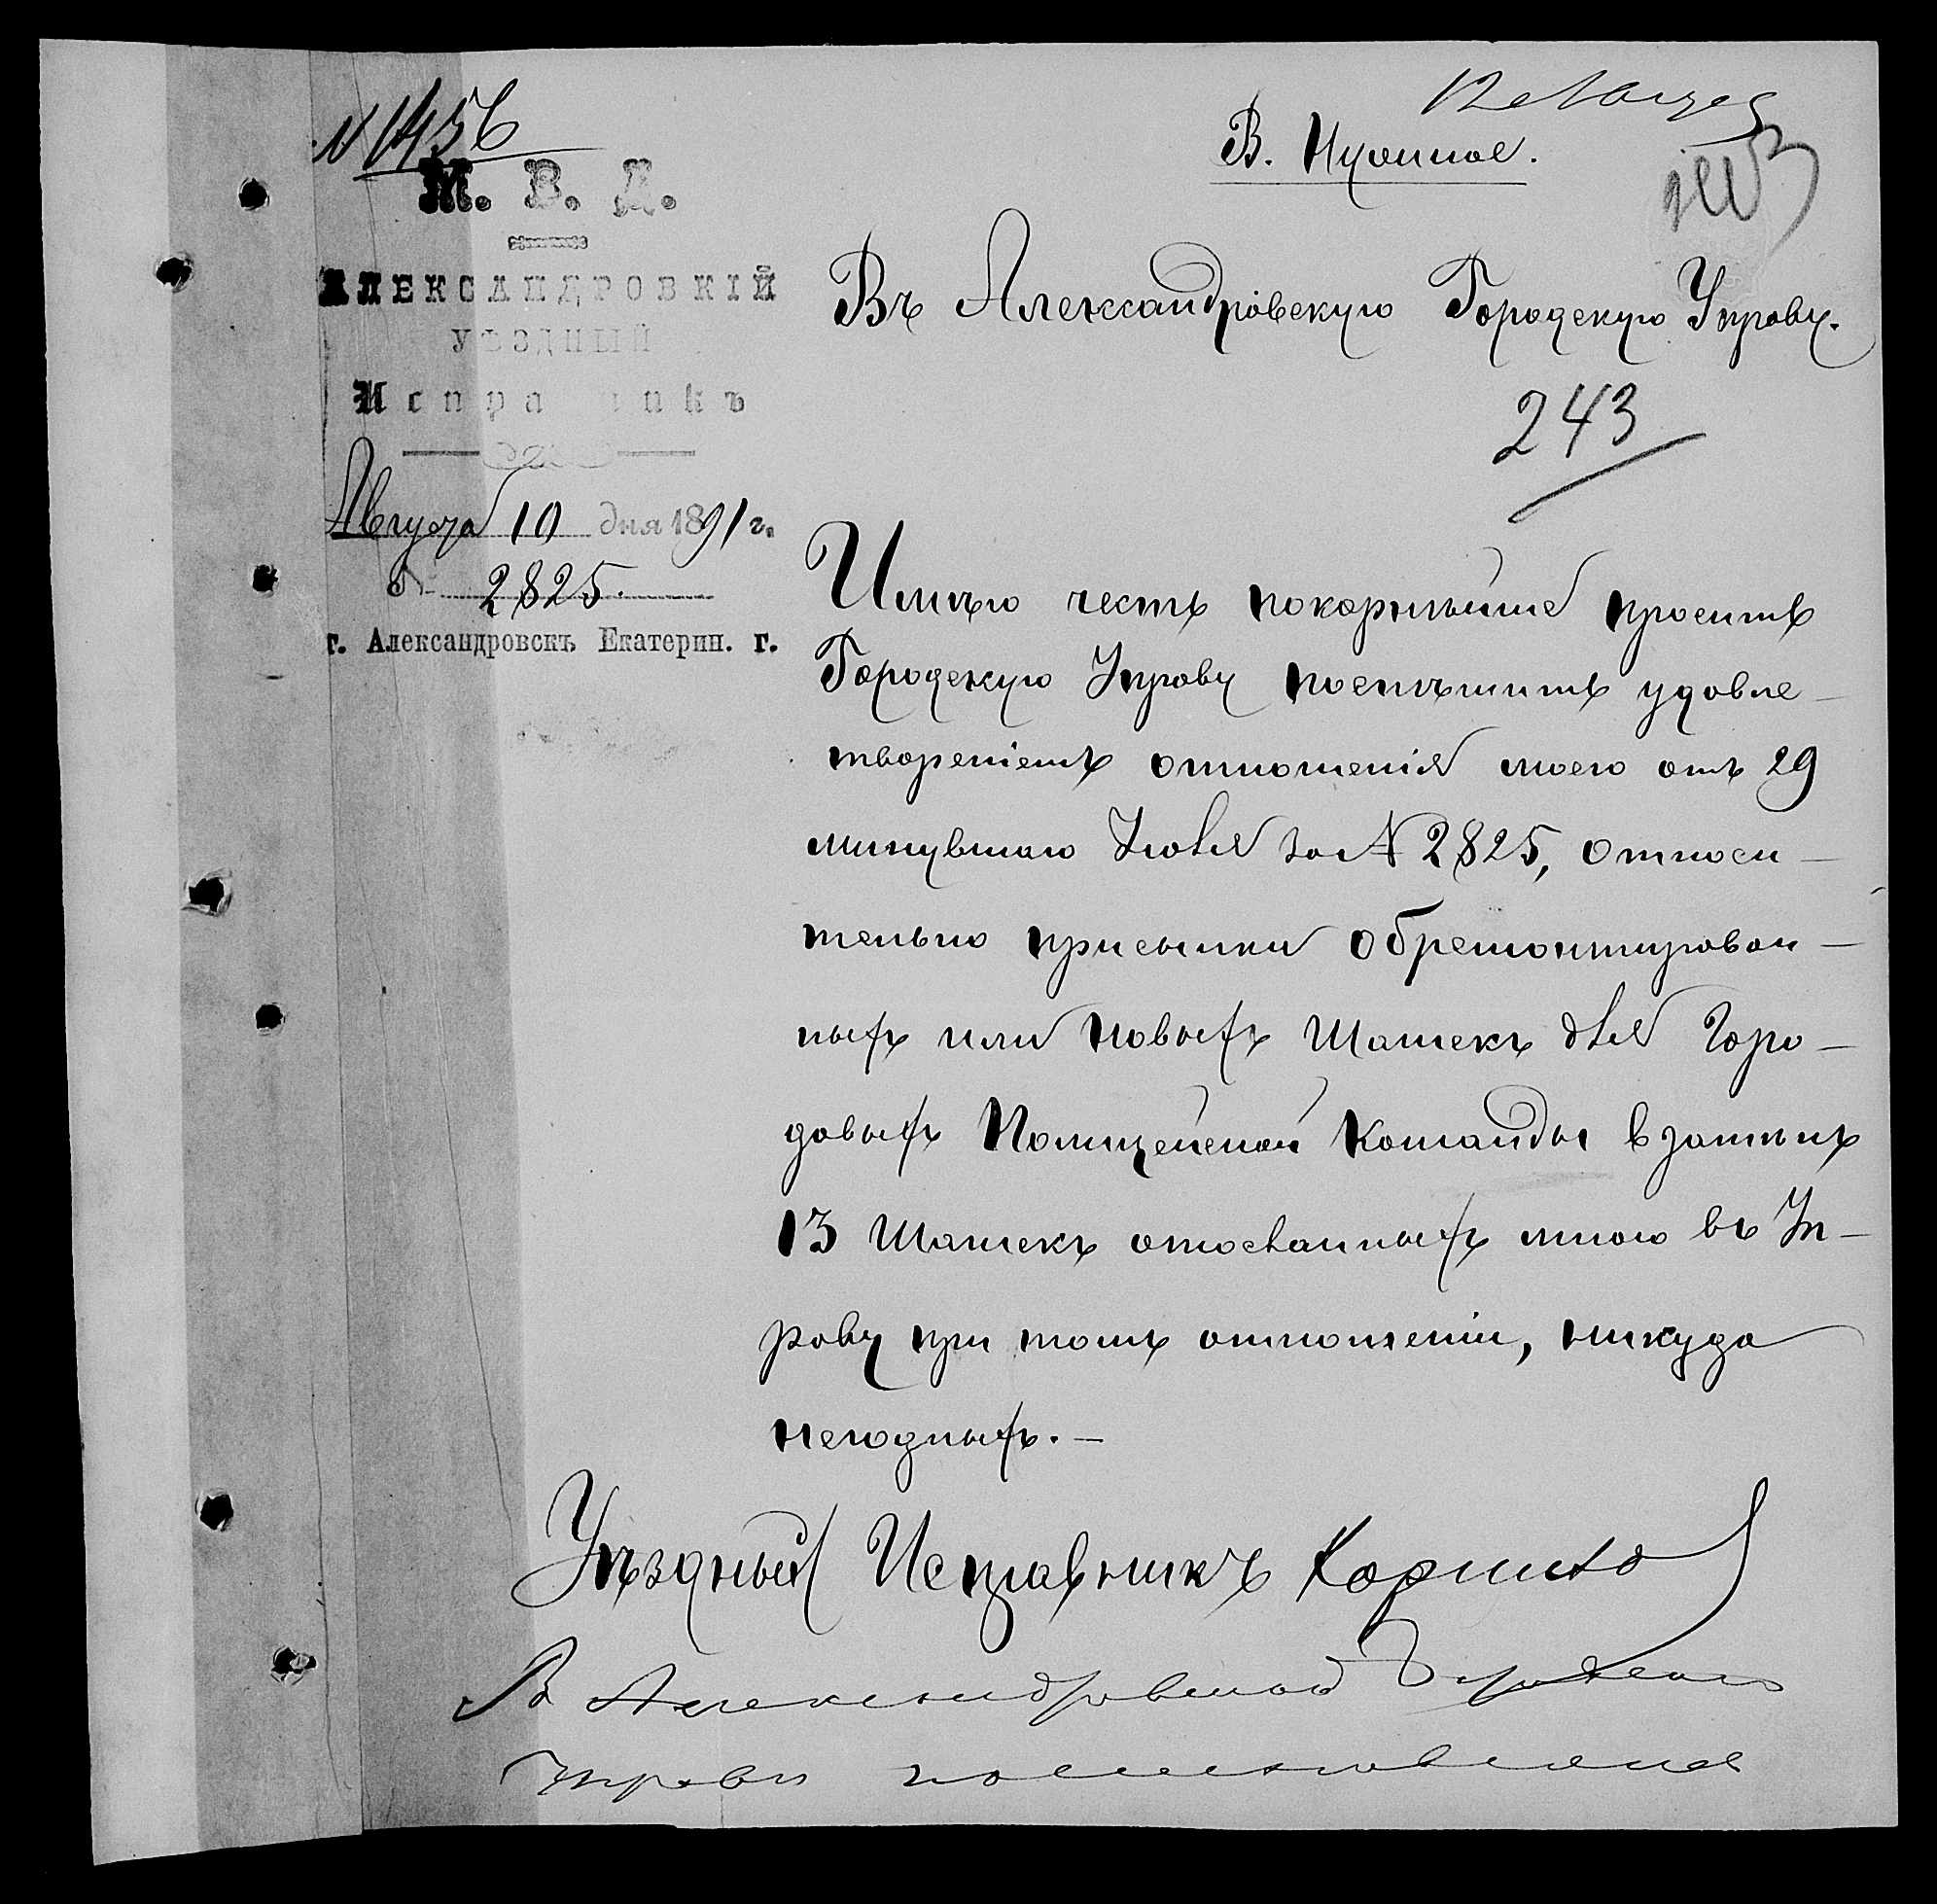 № 1456
В. Нужное.
М. В. Д.
АЛЕКСАНДРОВКІЙ
УѢЗДНЫЙ
Исправникъ
Августа 10 дня 1891 г.
№ 2825.
г. Александровскъ Екатерин. г.
Въ Александровскую Городскую Управу.
243
Имѣю честь покорнѣйше просить
Городскую Управу поспѣшить удовле-
твореніемъ отношенія моего отъ 29
минувшаго Іюля за № 2825, относи-
тельно присылки обремонтирован-
ныхъ или новыхъ Шашекъ для Горо-
довыхъ Полицейской Команды взамѣнъ
13 Шашекъ отосланныхъ мною въ Уп-
раву при томъ отношеніи, никуда
негодныхъ.—
Уѣздный Исправникъ
В Александровской Городской
Управе постановлено